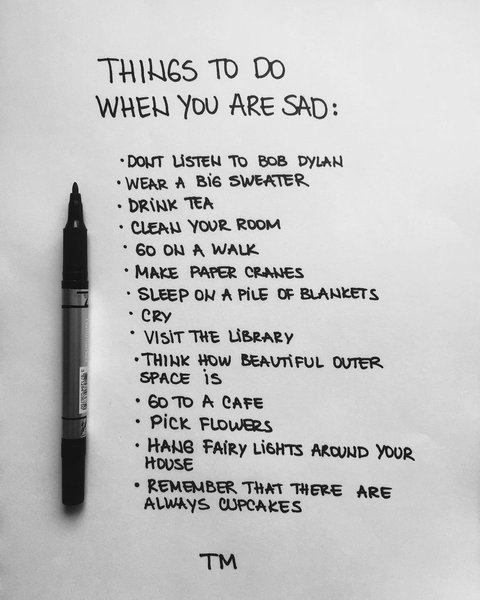 THINGS TO DO
WHEN YOU ARE SAD:
• DONT LISTEN TO BOB DYLAN
• WEAR A BIG SWEATER
• DRINK TEA
• CLEAN YOUR ROOM
• GO ON A WALK
• MAKE PAPER CRANES
• SLEEP ON A PILE OF BLANKETS
• CRY
• VISIT THE LIBRARY
• THINK HOW BEAUTIFUL OUTER
SPACE IS
• GO TO A CAFE
• PICK FLOWERS
• HANG FAIRY LIGHTS AROUND YOUR
HOUSE
• REMEMBER THAT THERE ARE
ALWAYS CUPCAKES
TM